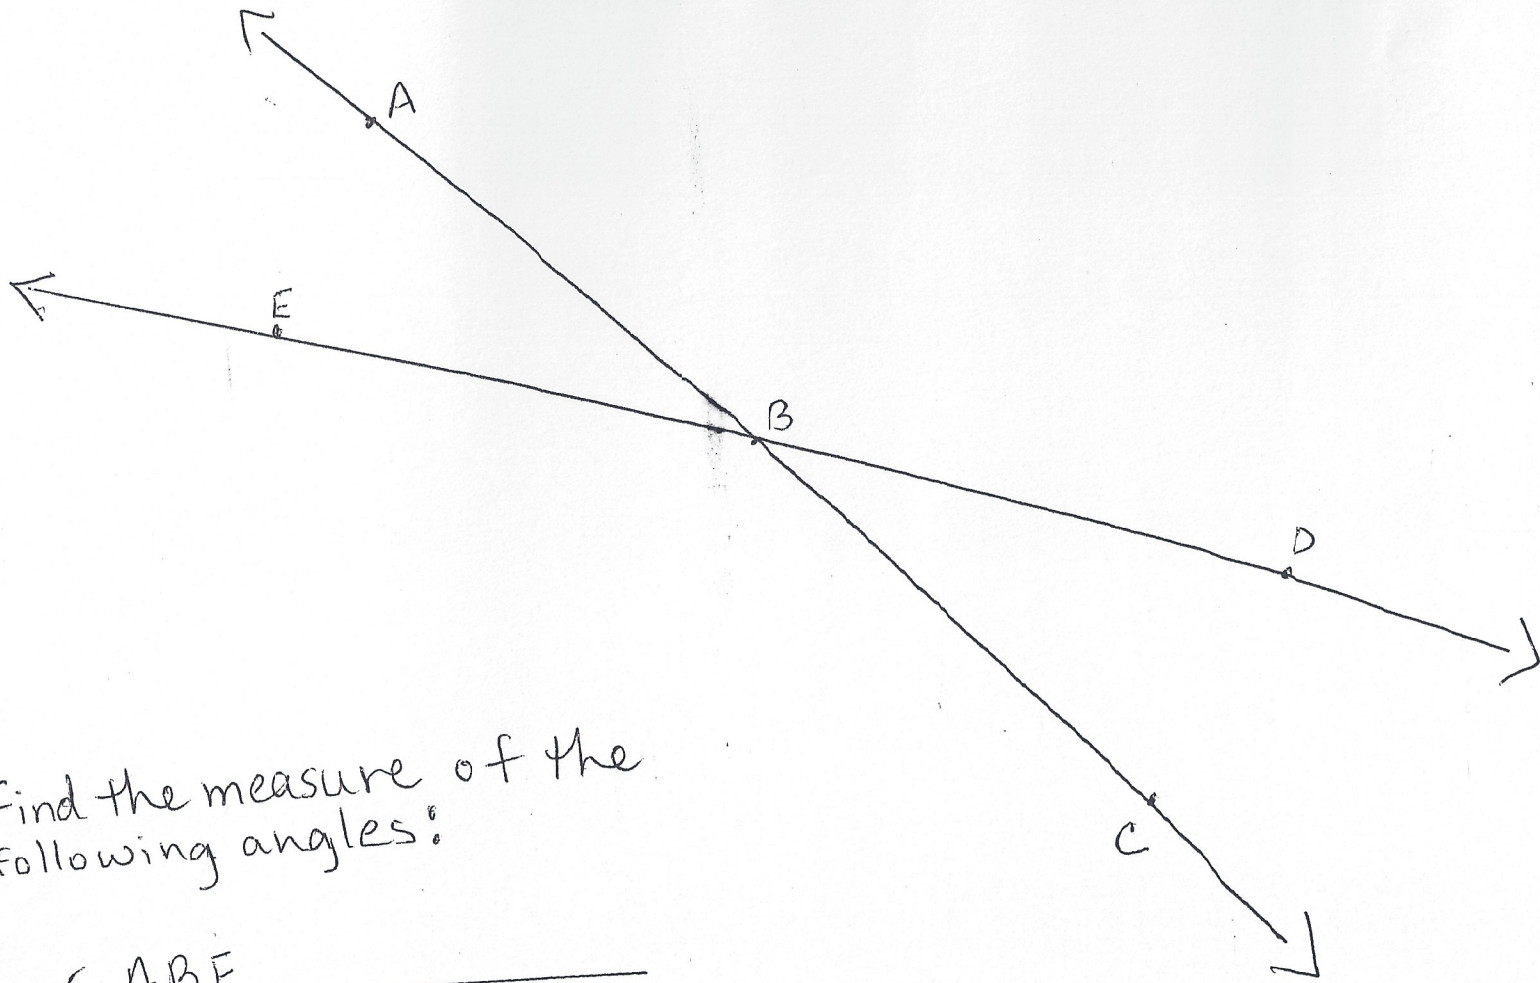 A
E
B
D
C
Find the measure of the
following angles:
∠ ABE